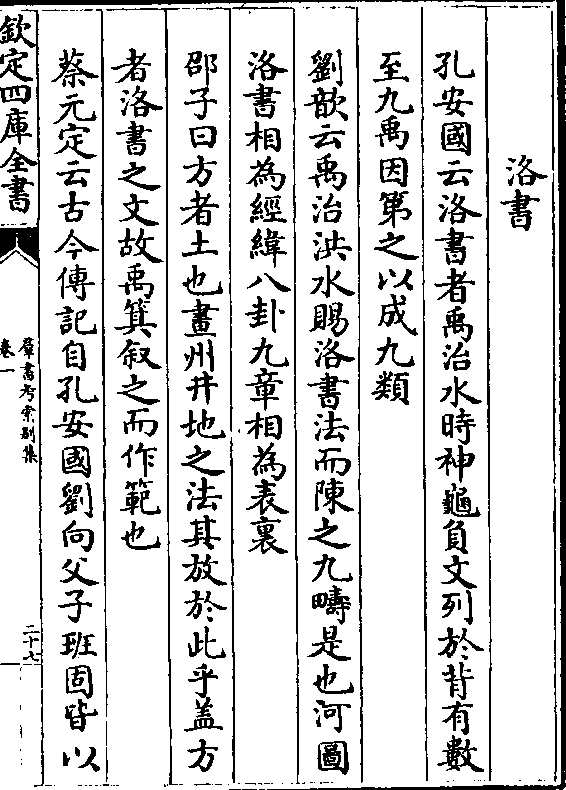 洛書
孔安國云洛書者禹治水時神龜負文列於背有數
至九禹因第之以成九類
劉歆云禹治洪水賜洛書法而陳之九疇是也河圖
洛書相為經緯八卦九章相為表裏
邵子曰方者土也畫州井地之法其放於此乎盖方
者洛書之文故禹箕叙之而作範也
蔡元定云古今傳記自孔安國劉向父子班固皆以
欽定四庫全書
羣書考索别集
卷一
二十六